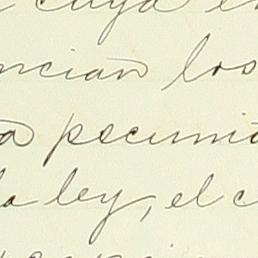 cuya
ncian los
a pecunia
la ley, el c